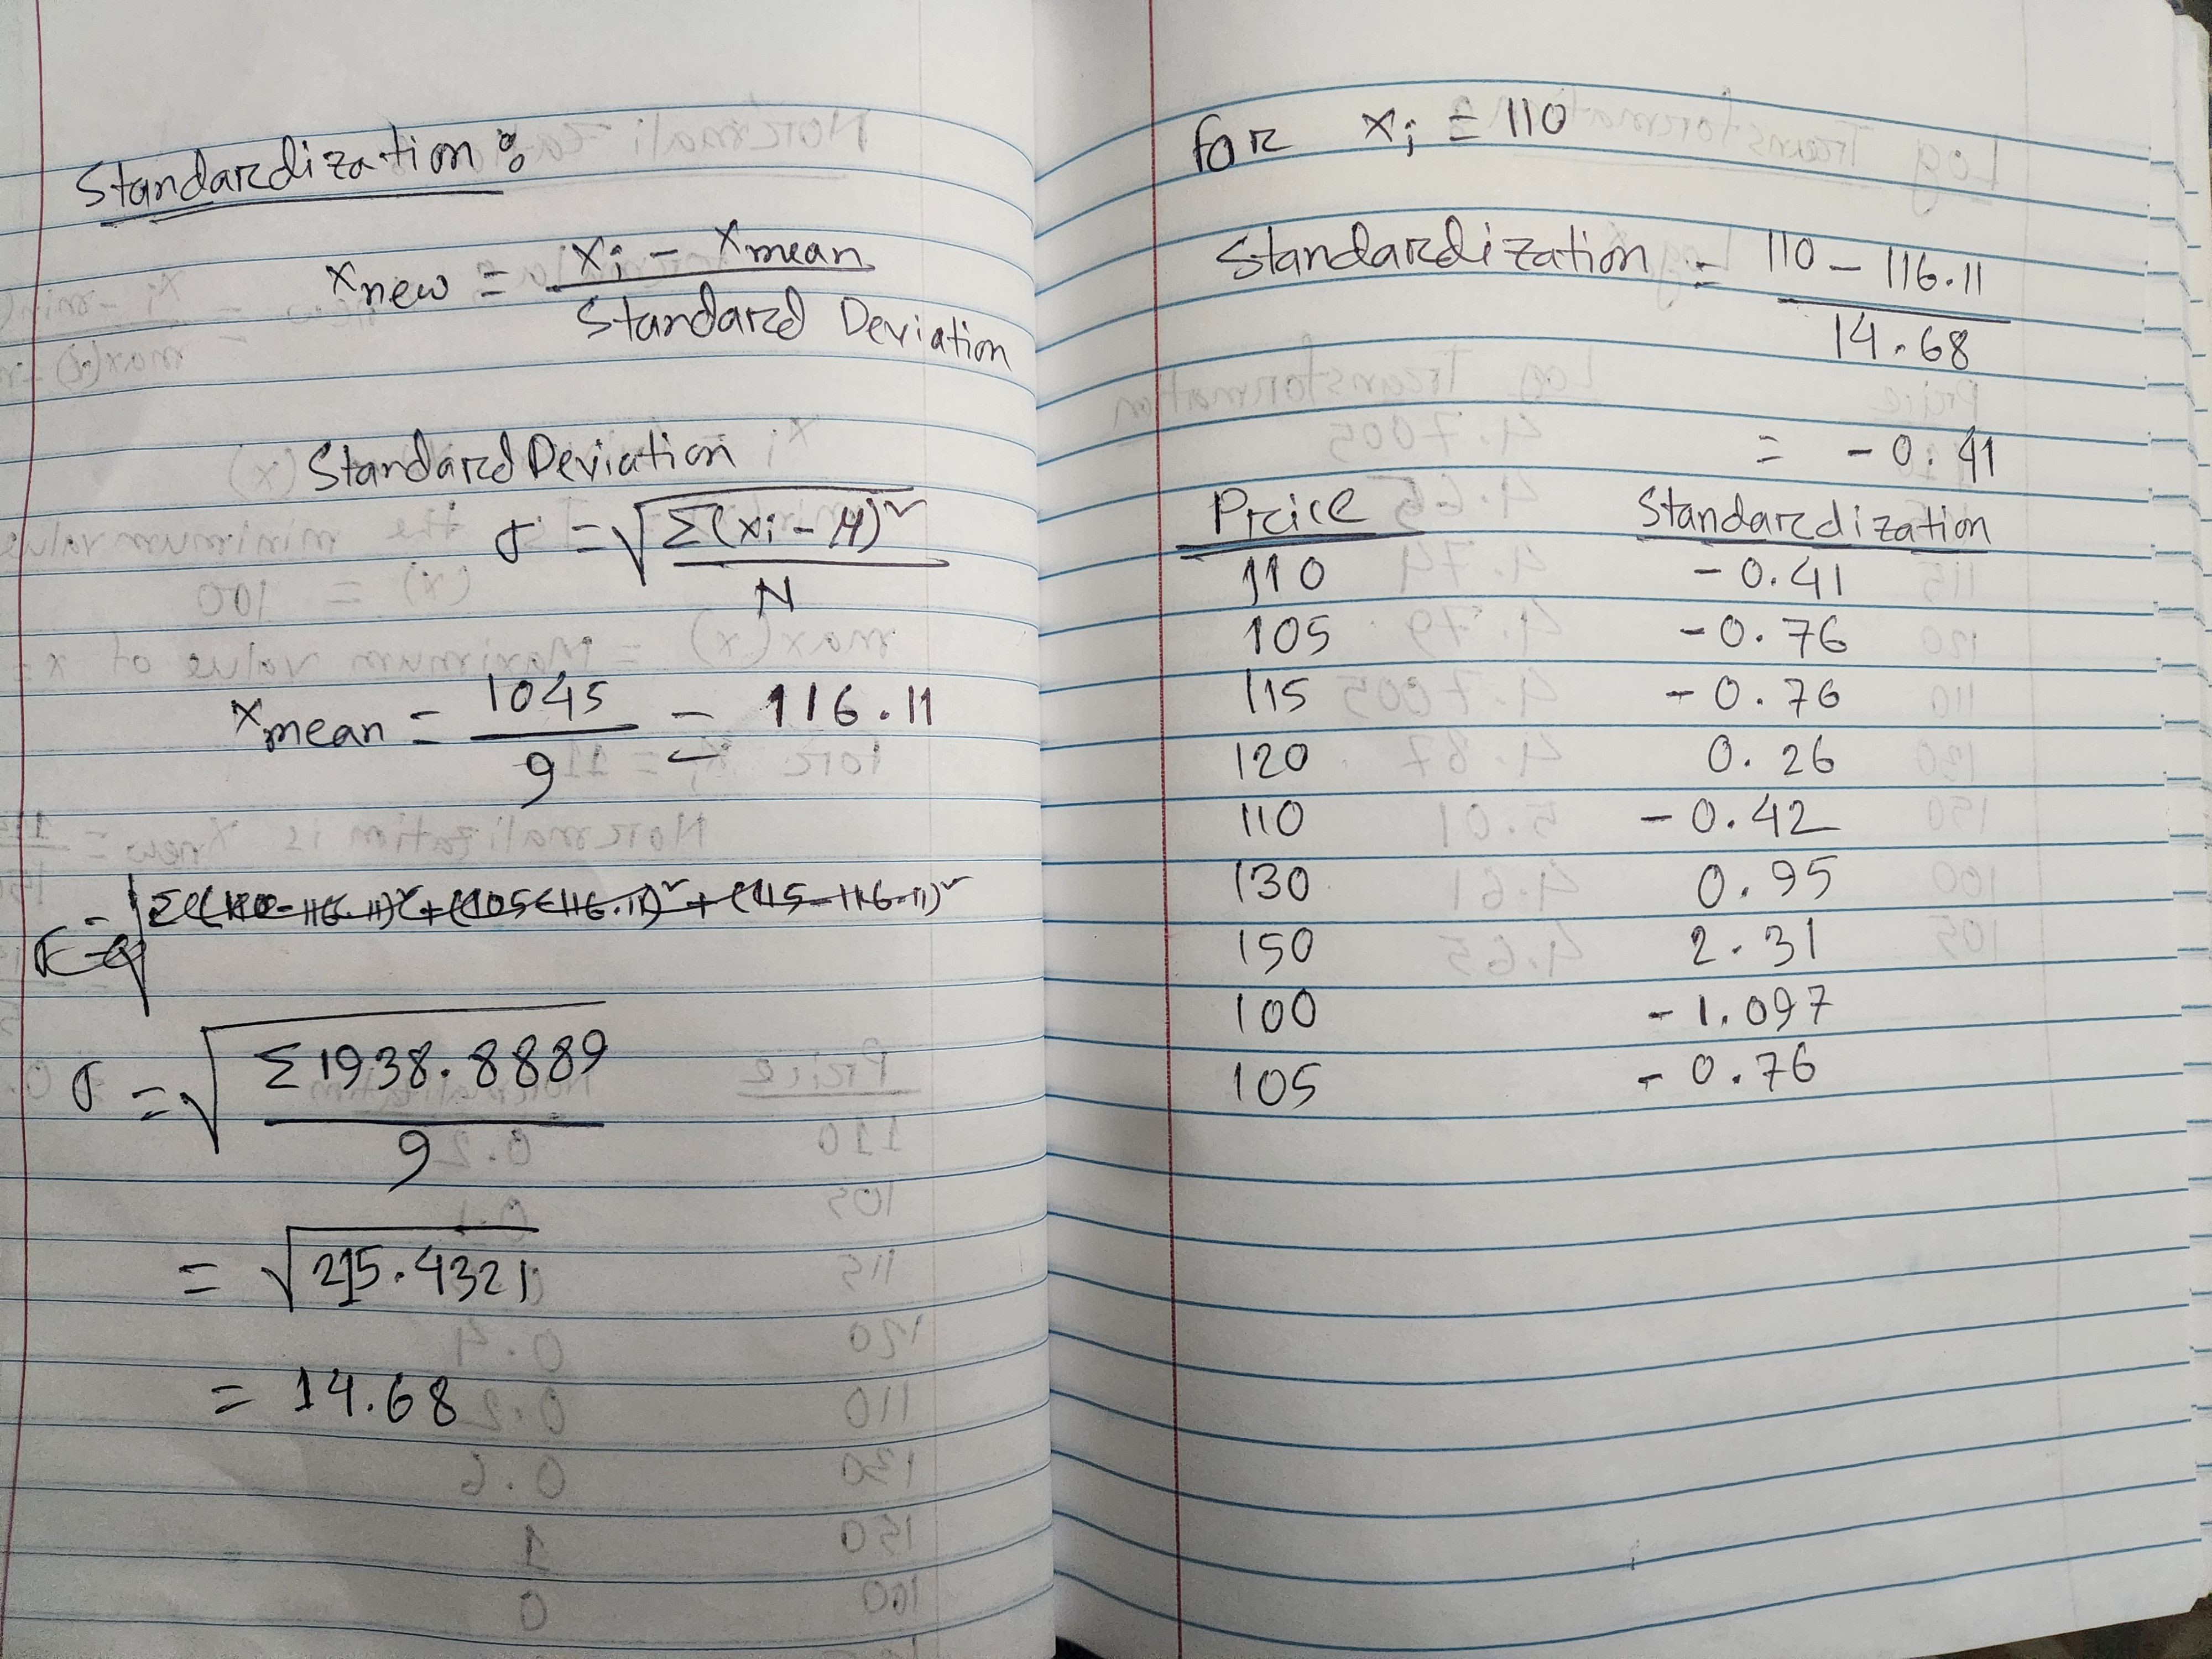 Standardization :
x new = xi - x mean / Standard Deviation
Standard Deviation
σ = √ Σ(xi - μ)² / N
x mean = 1045 / 9 = 116.11
σ = √ Σ 1938.8889 / 9
= √ 215.4321
= 14.68
for xi = 110
Standardization = 110 - 116.11 / 14.68
= - 0.41
Price Standardization
110 - 0.41
105 - 0.76
115 - 0.76
120 0.26
110 - 0.42
130 0.95
150 2.31
100 - 1.097
105 - 0.76